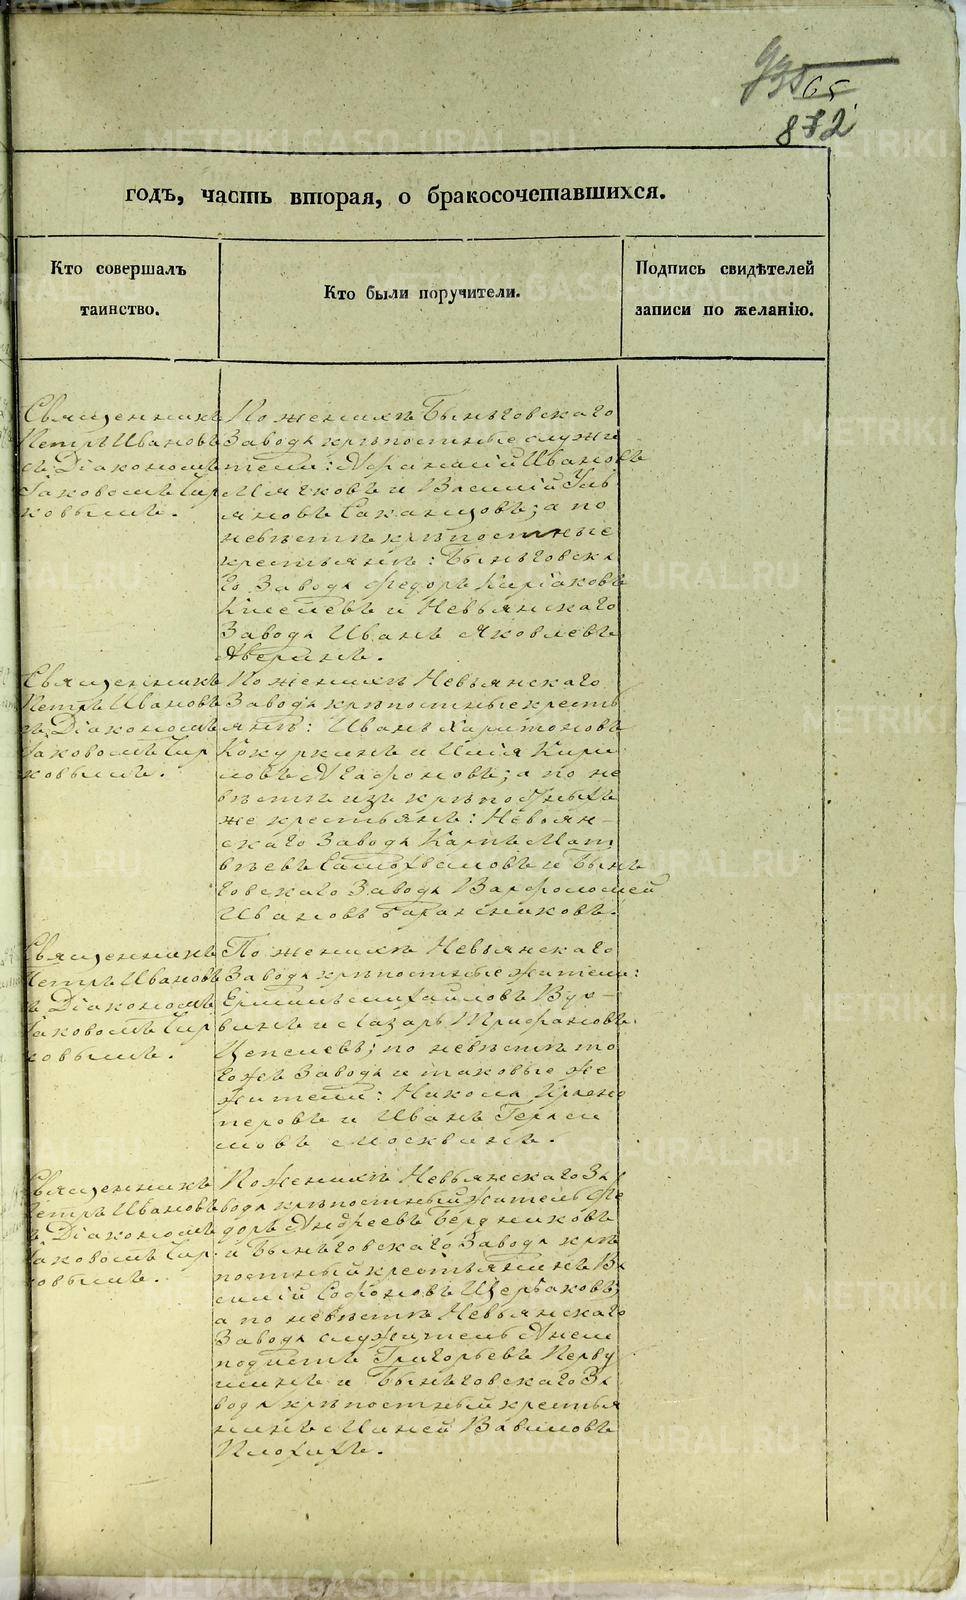 65
872
годъ, часть вторая, о бракосочетавшихся.
Кто совершалъ
таинство.
Кто были поручители.
Подпись свидѣтелей
записи по желанію.
Священникъ
Петръ Ивановъ
съ Діакономъ
Іаковомъ Чир
ковымъ.
По женихѣ Быньговскаго
Завода крѣпостные служи
тели: Афанасій Ивановъ
Мячковъ и Василій
яновъ а по
невѣстѣ крѣпостные
крестьяне: Быньговска
го Завода Федоръ
и Невьянскаго
Завода Иванъ Яковлевъ
Аверинъ.
Священникъ
Петръ Ивановъ
съ Діакономъ
Іаковомъ Чир
ковымъ.
По женихѣ Невьянскаго
Завода крѣпостные кресть
янъ: Иванъ Харитоновъ
Кокуркинъ и Илія Кири
ловъ Агафоновъ; а по не
вѣстѣ изъ крѣпостныхъ
же крестьянъ: Невьян-
скаго Завода Карпъ Мат
вѣевъ Самохваловъ и Бынь
говскаго Завода Варфоломей
Ивановъ
Священникъ
Петръ Ивановъ
съ Діакономъ
Іаковомъ Чир
ковымъ.
По женихѣ Невьянскаго
Завода крѣпостные жители:
Михайловъ
и Лазарь Трифановъ
Цепелевъ; по невѣстѣ то
гоже Завода и таковые же
жители: Никола
перовъ и Иванъ Гераси
мовъ Москвинъ.
Священникъ
Петръ Ивановъ
съ Діакономъ
Іаковомъ Чир
ковымъ.
По женихѣ Невьянскаго За
вода крѣпостный житель Фе
доръ Андреевъ Бердниковъ
и Быньговскаго Завода крѣ
постный крестьянинъ Ва
силій Софоновъ Щербаковъ;
а по невѣстѣ Невьянскаго
Завода служитель Анем
подистъ Григорьевъ Перву
шинъ и Быньговскаго За
вода крѣпостный крестья
нинъ Вавиловъ
Плохихъ.
METRIKI.GASO-URAL.RU